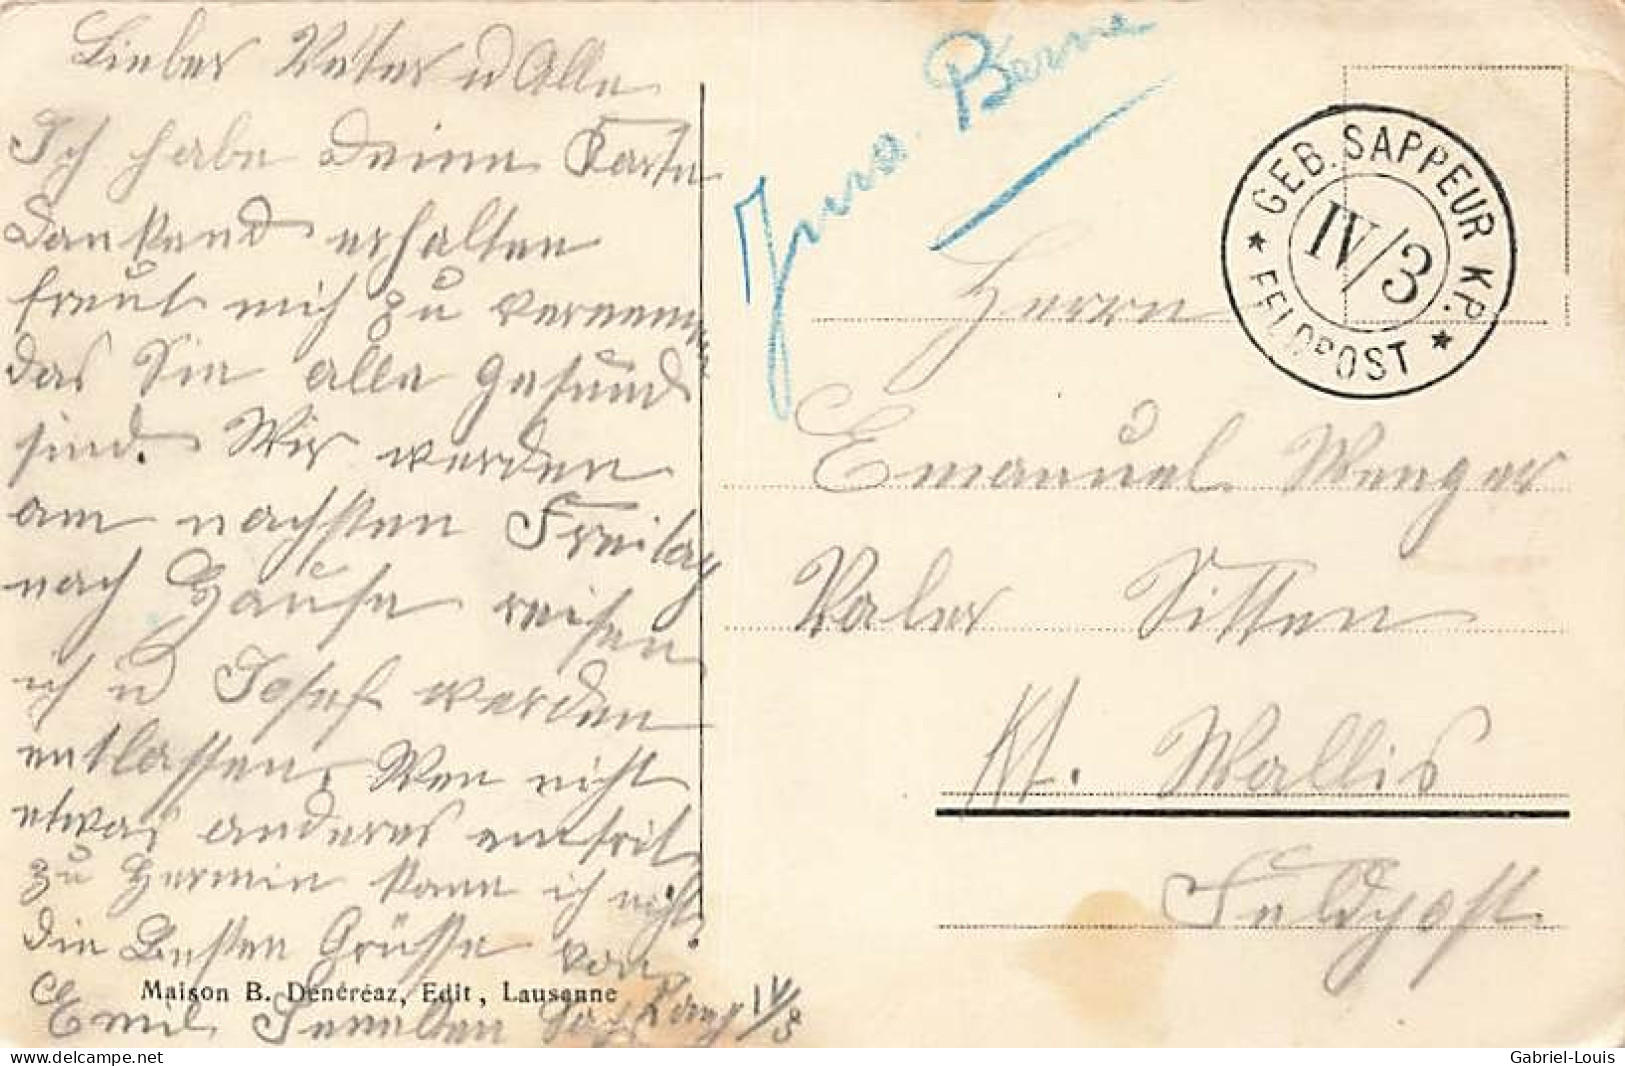 Lieber Vetter u Alle
Ich habe Deine Karte
Dankend erhalten
freut mich zu vernemen
das Sie alle gesund
sind. Wir werden
am nachsten Freitag
nach Hause reisen
ich u Josef werden
entlassen. Wen nicht
etwas anderes eintrit
zu Hermin kann ich nicht.
die Besten Grüsse von
Emil
Maison B. Dénéréaz, Edit, Lausanne
Jura-Berne
GEB. SAPPEUR KP.
IV/3
FELDPOST
Herrn
Emanuel Wenger
Sitten
Kt. Wallis
Feldpost.
delcampe.net
Gabriel-Louis